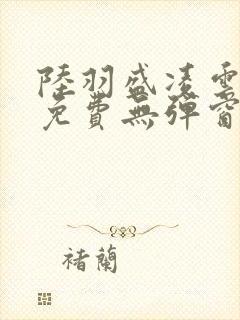 陸羽盛凌雲
免費無彈窗
褚蘭